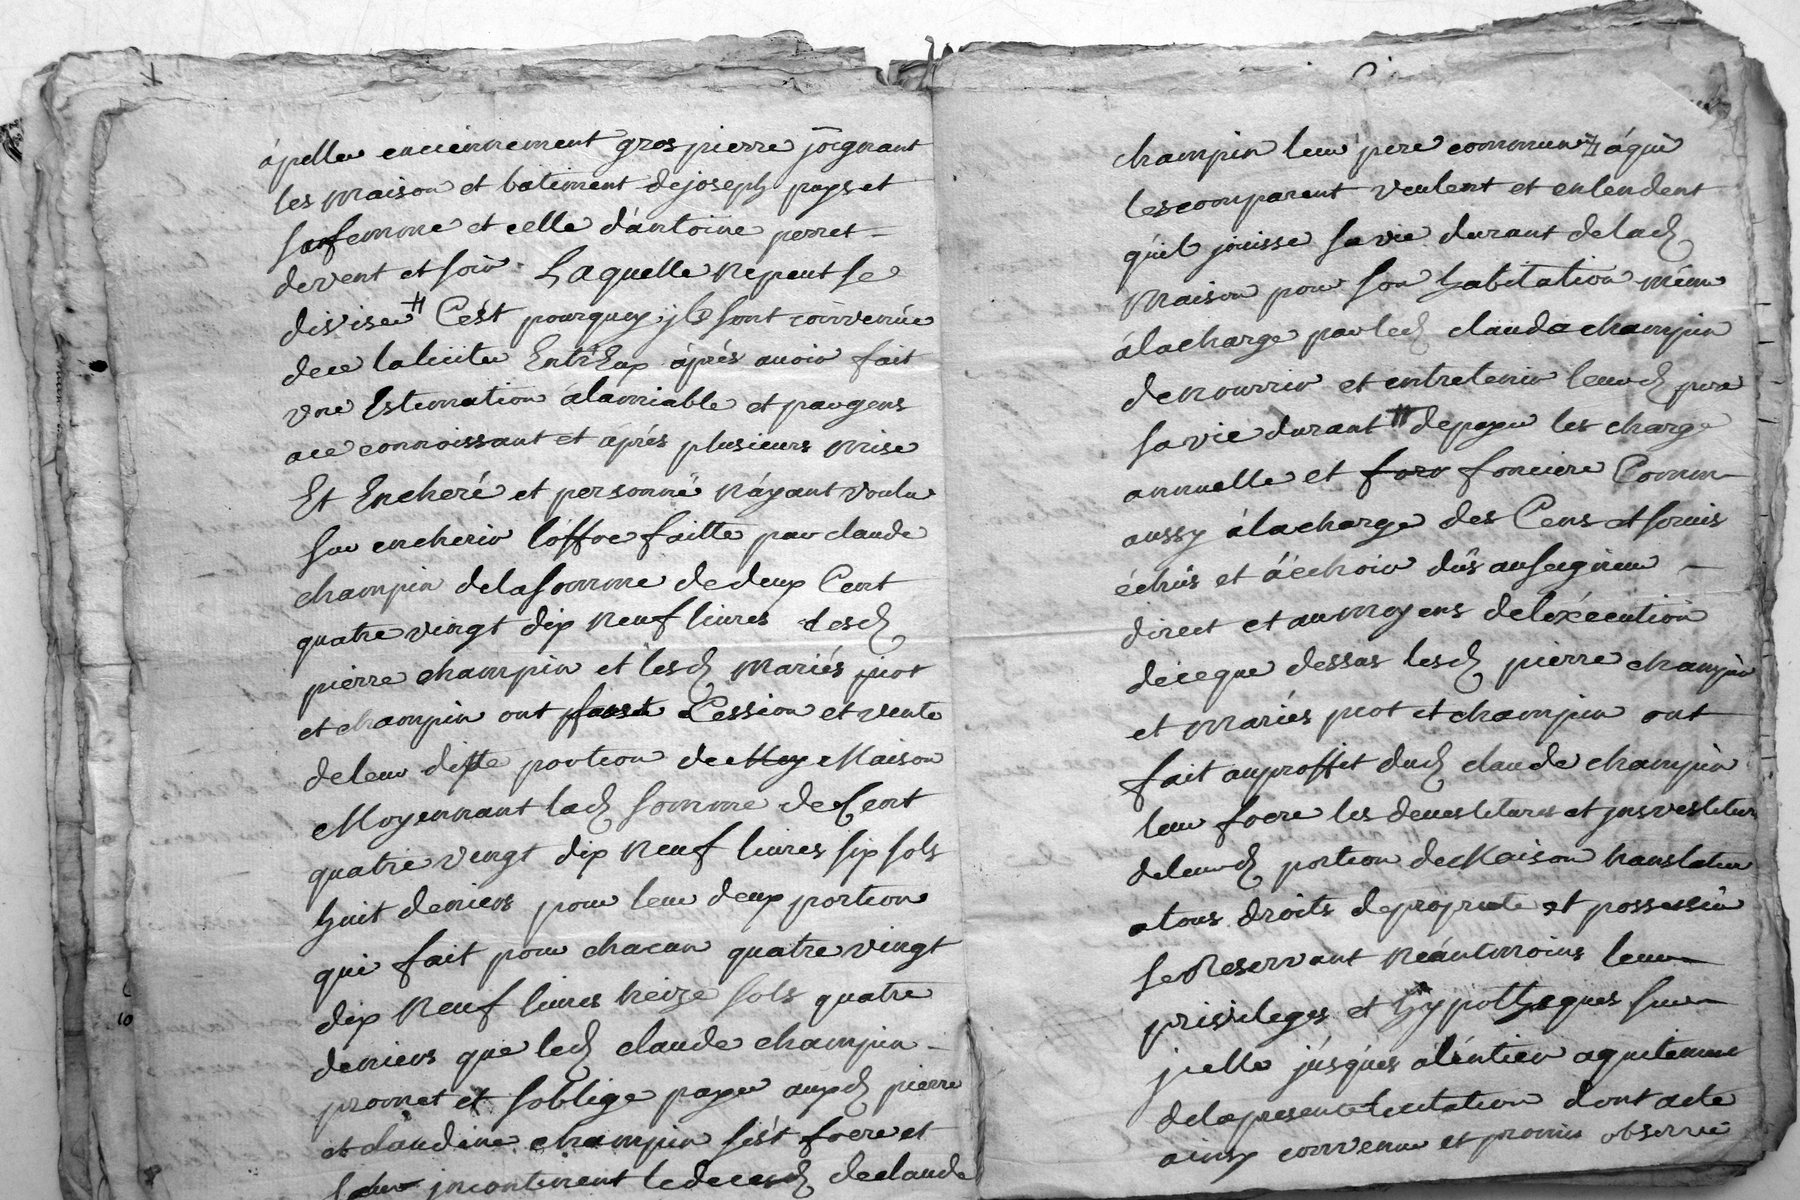 apeller enciennement gros pierre joignant
les maison et batiment de joseph pays et
sa femme et celle d'antoine perret
devent et soir Laquelle ne peut se
diviser C'est pourquoy ils sont convenüe
de ce laliciter Entr'Eux áprés auoir fait
vne Estimation álamiable et par gens
a ce connoissant et áprés plusieurs mise
Et Encheré et personne N'áyant voulu
sur encherir l'offre faitte par claude
champin de la somme de deux Cent
quatre vingt dix neuf liures lesd
pierre champin et lesd mariés piot
et champin ont Cession et vente
de leur ditte portion de Maison
Moyennant lad somme de Cent
quatre vingt dix neuf liures six sols
huit deniers pour leur deux portion
qui fait pour chacun quatre vingt
dix neuf liures treize sols quatre
deniers que led claude champin
promet et soblige payer auxd pierre
et claudine champin sést frere et
incontinent le deces de claude
champin leur pere commun áquí
les comparent veulent et entendent
qu'il jouisse sa vie durant de lad
Maison pour son habitation même
á la charge par led claude champin
de nourrir et entretenir leurd pere
sa vie durant de payer les charge
annuelle et fonciere Comm
aussy á la charge des Cens et seruis
échus et á échoir dûs au seigneur
direct et au moyens de l'éxécution
de ce que dessus lesd pierre champin
et mariés piot et champin ont
fait au proffit dud claude champin
leur frere les deuestitures et jnvestiture
de leurd portion de Maison translation
a tous droits de proprieté et possession
se Reservant Neántmoins leur
privileges et hypotheques sur
jcelle jusques a l'éntier aquitement
de la presente licitation dont acte
ainsy convenu et promis observer